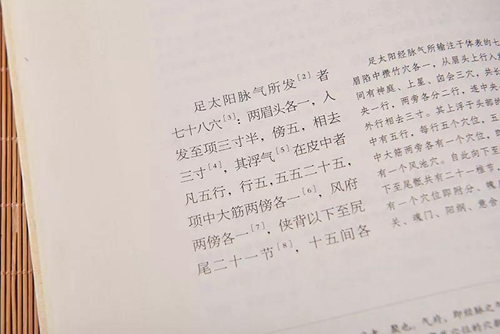 足太阳脉气所发[2]者
七十八穴[3]：两眉头各一，入
发至项三寸半，傍五，相去
三寸[4]，其浮气[5]在皮中者
凡五行，行五，五五二十五，
项中大筋两傍各一[6]，风府
两傍各一[7]，侠背以下至尻
尾二十一节[8]，十五间各
足太阳经脉气所输注于体表的七
眉陷中攒竹穴各一，从眉头上行入发
间有神庭、上星、囟会三穴，共长
央一行，两旁各分二行，连中央
外行相去三寸。其上浮于头部
中有五行，每行五个穴位，五
中大筋两旁各有一个穴位，
有一个风池穴。自此向下
下至尾骶共有二十一椎节，
有一个穴位即附分、魄
关、魂门、阳纲、意舍